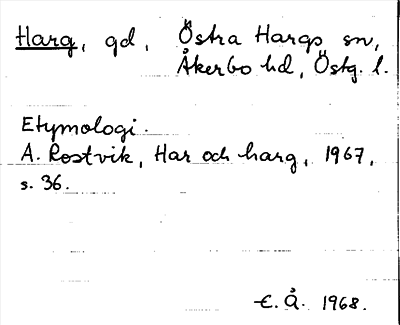 Harg, gd, Östra Hargs sn,
Åkerbo hd, Östg. l.
Etymologi.
A. Rostvik, Har och harg, 1967,
s. 36.
E. Å. 1968.